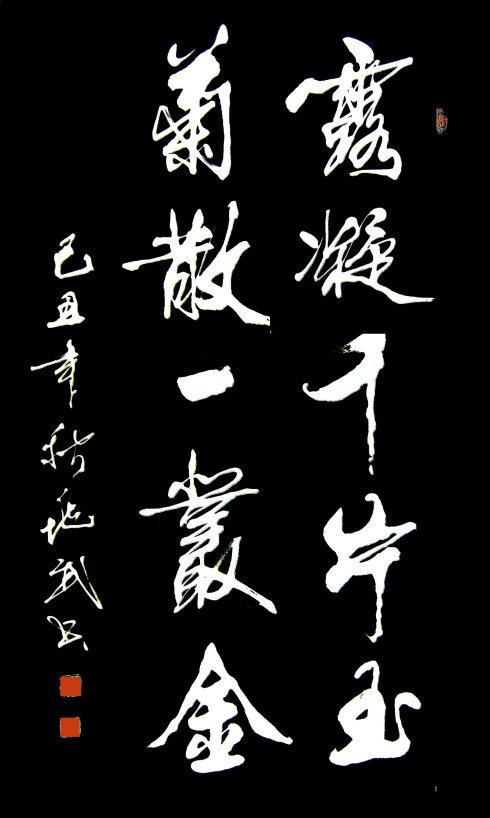 露凝千片玉
菊散一叢金
己丑年秋
武書